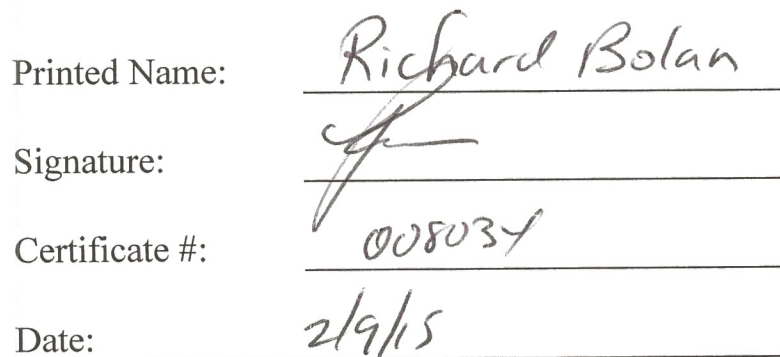 Printed Name: Richard Bolan
Signature:
Certificate #: 008034
Date: 2/9/15